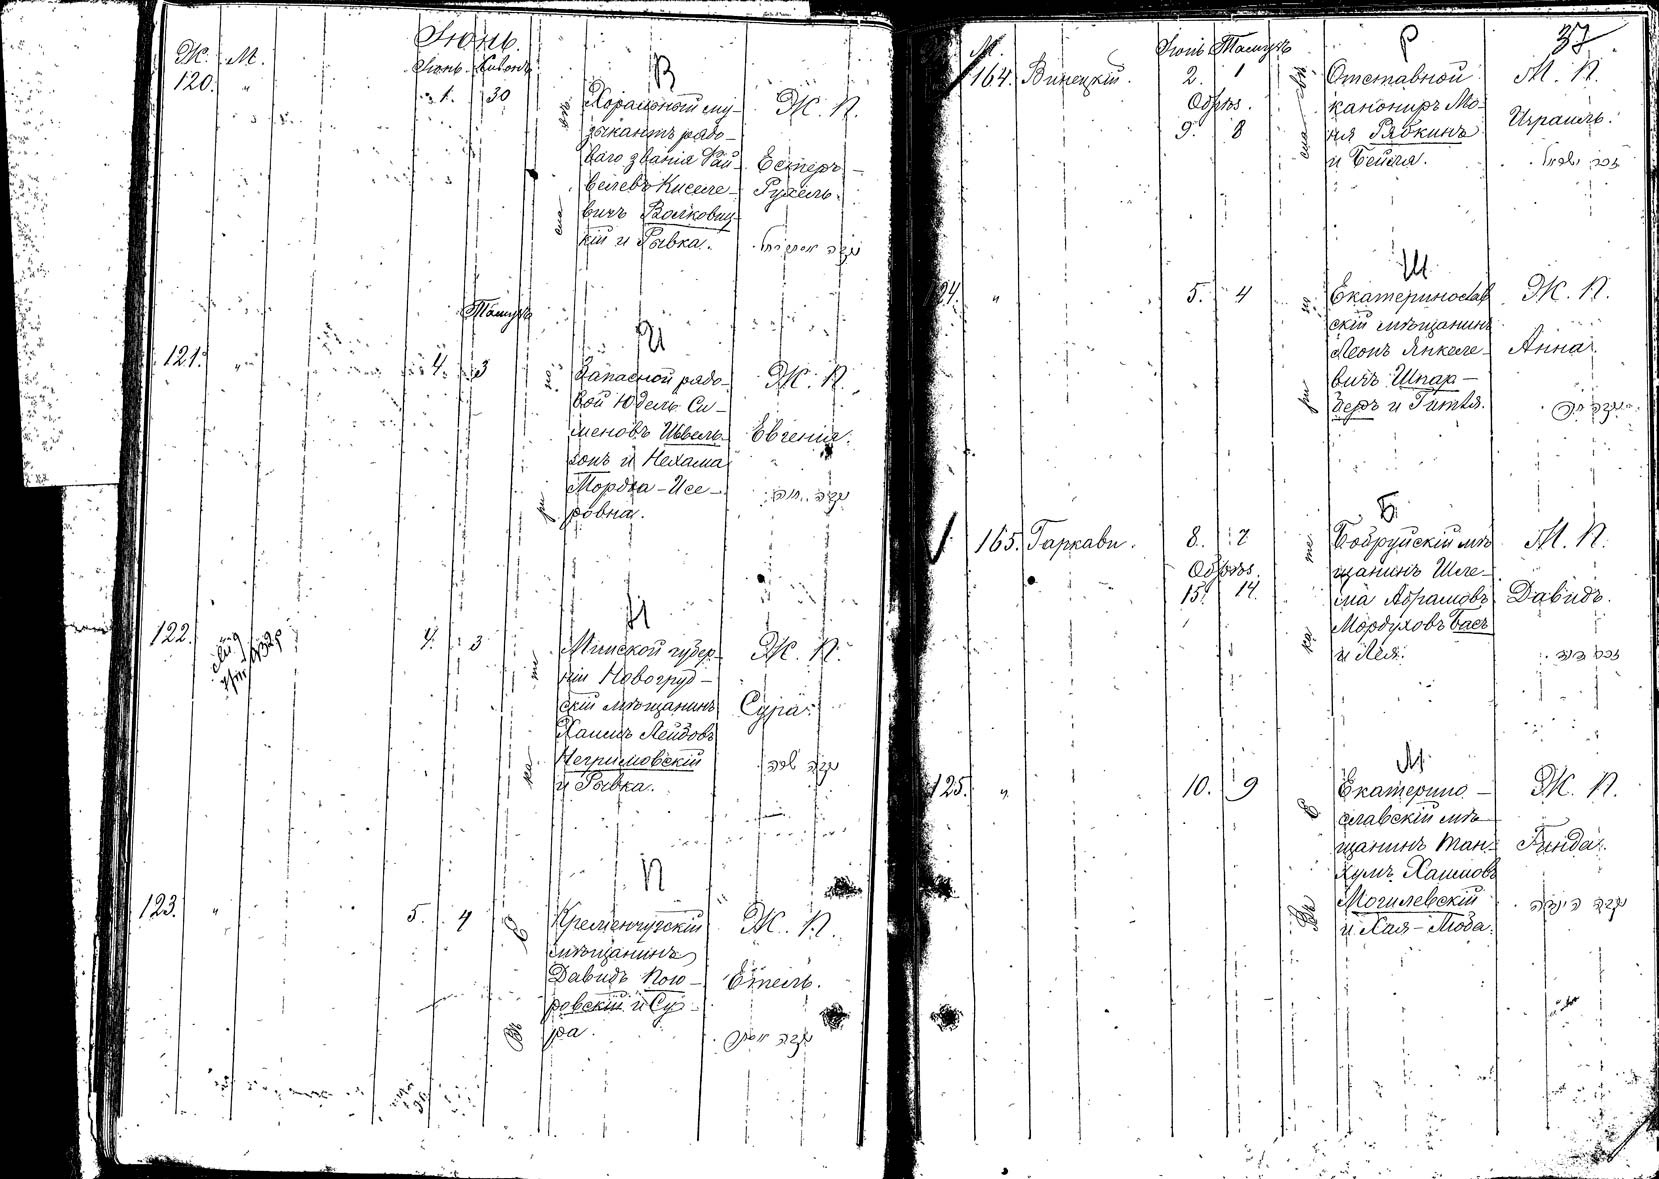 Іюнь.
Ж. М.
Іюнь. Сивонъ
120. " 1. 30
В
Хоральный му-
зыкантъ рядо-
ваго званія Фай-
велевъ Киселе-
вичъ Волковиц-
кій и Рывка.
Ж. П.
Естеръ-
Рухель.
Тамузъ
121. " 4. 3
И
Запасной рядо-
вой Юдель Си-
меновъ Ивель-
зонъ и Нехама
Мордха-Исе-
ровна.
Ж. П.
Евгенія.
נקבה חוה
122. 4. 3
Н
Минской губер-
ніи Новогруд-
скій мѣщанинъ
Хаимъ Лейбовъ
Негримовскій
и Рывка.
Ж. П.
Сура.
נקבה שרה
123. " 5. 4
П
Кременчугскій
мѣщанинъ
Давидъ Пого-
ровскій и Су-
ра.
Ж. П.
Етель.
Въ Е ка те ри но сла вѣ
37
М. Іюнь Тамузъ
164. Винецкій. 2. 1
Обрѣз.
9. 8
Р
Отставной
канониръ Мо-
ня Рябкинъ
и Бейля.
М. П.
Израиль.
זכר ישראל
124. " 5. 4
Ш
Екатеринослав
скій мѣщанинъ
Леонъ Янкеле-
вичъ Шпар-
беръ и Гитля.
Ж. П.
Анна.
165. Гаркави. 8. 7
Обрѣз.
15. 14.
Б
Бобруйскій мѣ
щанинъ Шле-
ма Абрамовъ
Мордуховъ Басъ
и Лея.
М. П.
Давидъ.
זכר דוד
125. " 10. 9
М
Екатерино-
славскій мѣ-
щанинъ Тан-
хумъ Хаимовъ
Могилевскій
и Хая-Люба.
Ж. П.
Гинда.
נקבה הינדה
Въ Е ка те ри но сла вѣ